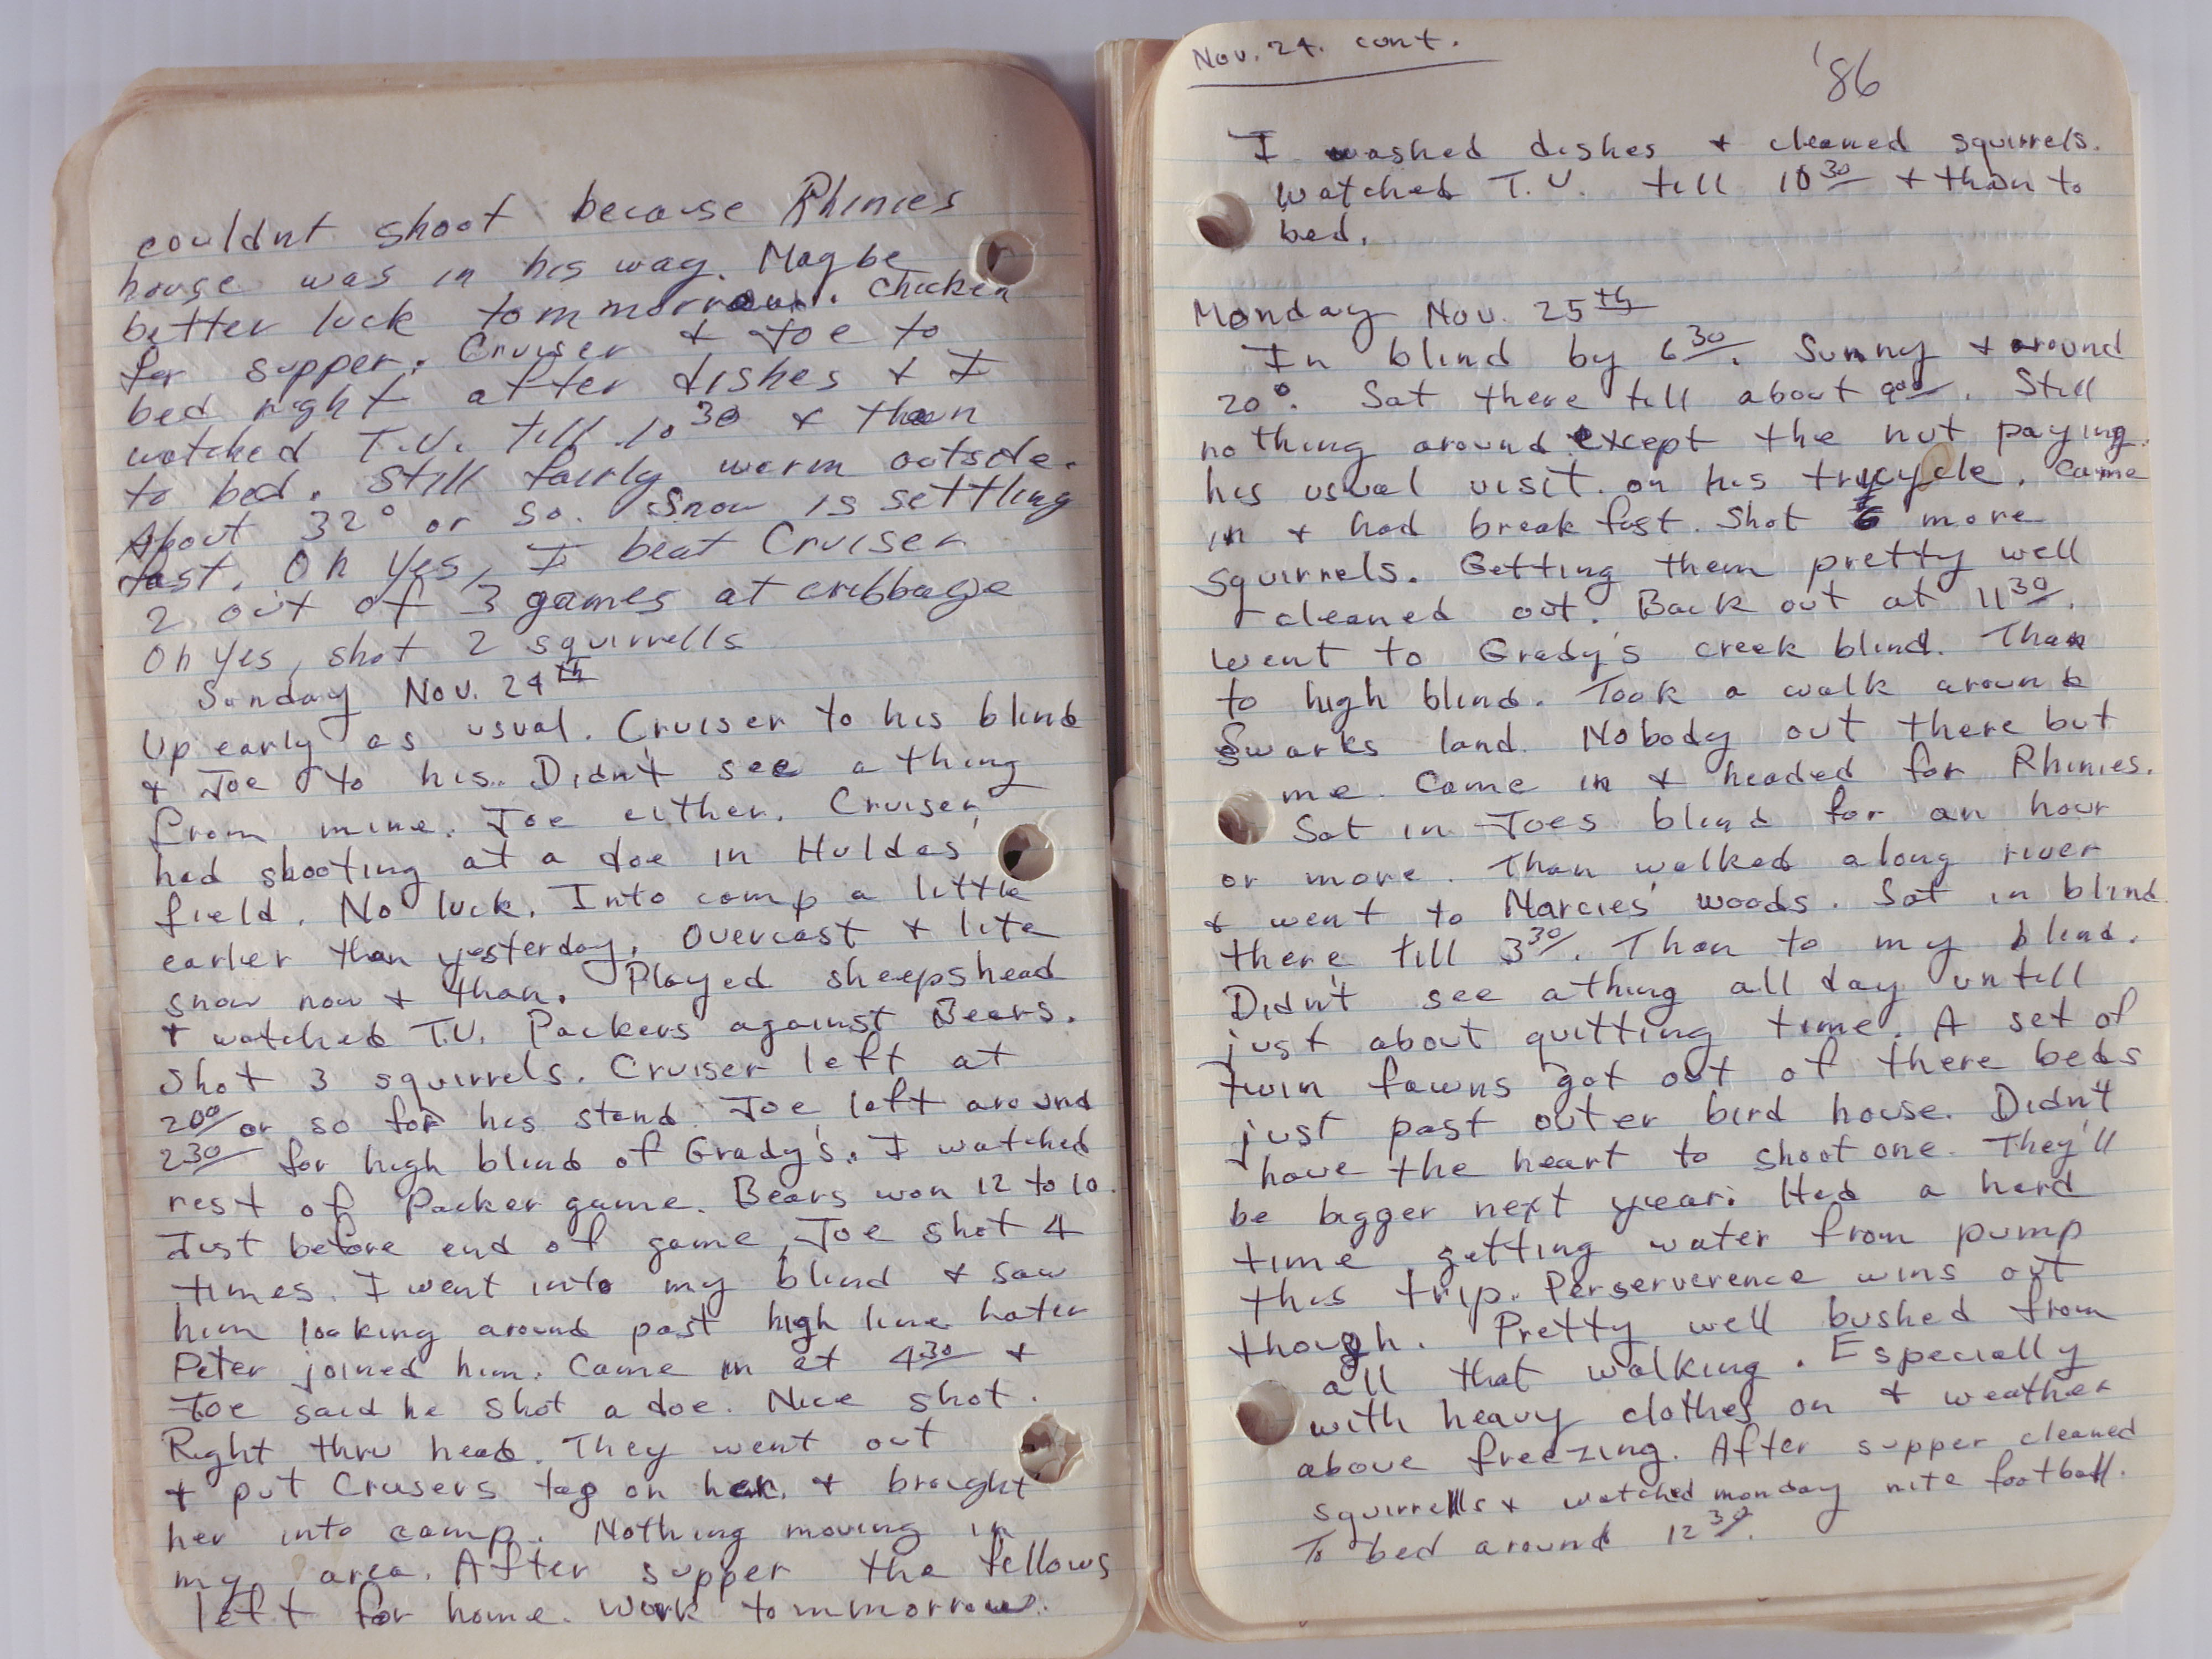 couldnt shoot because Rhinies
house was in his way. Maybe
better luck tommorrow. Chicken
for supper. Cruiser + Joe to
bed right after dishes + I
watched T.V. till 10 30 + than
to bed. Still fairly warm outside.
About 32° or so. Snow is settling
fast. Oh yes, I beat Cruiser
2 out of 3 games at cribbage
Oh yes, shot 2 squirrells
Sunday Nov. 24th
Up early as usual. Cruiser to his blind
+ Joe to his. Didn't see a thing
from mine. Joe either. Cruiser
had shooting at a doe in Huldas'
field. No luck. Into camp a little
earlier than yesterday. Overcast + lite
snow now + than. Played sheepshead
+ watched T.V. Packers against Bears.
Shot 3 squirrels. Cruiser left at
2 00 or so for his stand. Joe left around
2 30 for high blind of Grady's. I watched
rest of Packer game. Bears won 12 to 10.
Just before end of game Joe shot 4
times. I went into my blind + saw
him looking around past high line later
Peter joined him. Came in at 4 30 +
Joe said he shot a doe. Nice shot.
Right thru head. They went out
+ put Crusers tag on her. + brought
her into camp. Nothing moving in
my area. After supper the fellows
left for home. Work tommorrow.
Nov. 24. cont.
'86
I washed dishes + cleaned squirrels.
Watched T.V. till 10 30 + than to
bed.
Monday Nov. 25th
In blind by 6 30. Sunny + around
20°. Sat there till about 9 00. Still
nothing around except the nut paying
his usual visit on his trycycle. Came
in + had breakfast. Shot 6 more
squirrels. Getting them pretty well
cleaned out. Back out at 11 30.
Went to Grady's creek blind. Than
to high blind. Took a walk around
Swarks land. Nobody out there but
me. Came in + headed for Rhinies.
Sat in Joes blind for an hour
or more. Than walked along river
+ went to Marcies' woods. Sat in blind
there till 3 30. Than to my blind.
Didn't see a thing all day untill
just about quitting time. A set of
twin fawns got out of there beds
just past outer bird house. Didn't
have the heart to shoot one. They'll
be bigger next year. Had a hard
time getting water from pump
this trip. Perserverence wins out
though. Pretty well bushed from
all that walking. Especially
with heavy clothes on + weather
above freezing. After supper cleaned
squirrells + watched monday nite football.
To bed around 12 30.